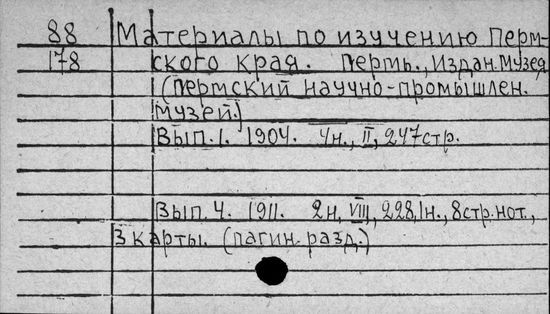 88 Материалы по изучению Перм-
178 ского края. Пермь., Издан. Музея
(Пермский научно-промышлен.
Музей.)
Вып. 1. 1904. 4н., II, 247 стр.
Вып. 4. 1911. 2н, VIII, 228, 1н., 8 стр. нот.,
3 карты. (пагин. разд.)